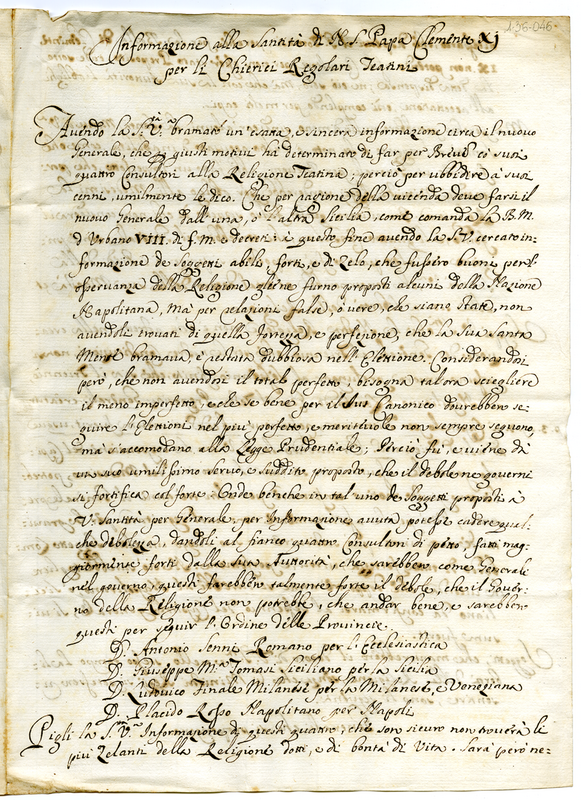 1-36-046
Informazione alla Santità di N. S. Papa Clemente XI
per li Chierici Regolari Teatini
Avendo la S.tà V.ra bramato un'esatta, e sincera informazione circa il nuovo
Generale, che giusti motivi ha determinato di far per Breve co' suoi
quattro Consultori alla Religione Teatina; perciò per ubbidire a' suoi
cenni, umilmente le dico. Che per ragione della vicenda deve farsi il
nuovo Generale dall'una, o l'altra Sicilia, come comanda la B. M.
d'Urbano VIII. di f. M. e decreti: à questo fine avendo la S. V. cercato in-
formazione de Soggetti abili, forti, e di Zelo, che fussero buoni per l'
osservanza della Religione gliene furno proposti alcuni della Nazione
Napolitana, mà per relazioni false, o vere, che siano state, non
avendoli trovati di quella fortezza, e perfezione, che la Sua Santa
Mente bramava, è restata dubbiosa nell'Elettione. Considerandosi
però, che non avendosi il total perfetto, bisogna tal'ora sciegliere
il meno imperfetto, e che se bene per il Jus Canonico dovrebbero se-
guire l'Elettioni nel più perfetto, e meritevole non sempre seguono,
mà s'accomodano alla Legge Prudentiale; Perciò fù, e viene dà
un suo umilissimo servo, e suddito proposto, che il debole ne governi
si fortifica col forte: Onde benche in tal'uno de Soggetti proposti a
V. Santità per Generale, per Informazione avuta, potesse cadere qual-
che debolezza, dandoli al fianco quattro Consultori di petto fatti mag-
giormente forti dalla sua Auttorità, che sarebbero come Generale
nel governo, questi farebbero talmente forte il debole, che il Gover-
no della Religione non potrebbe, che andar bene, e sarebbero
questi per seguir l'Ordine delle Provincie.
D. Antonio Senni Romano per l'Ecclesiastica
D. Giuseppe M.a Tomasi Siciliano per la Sicilia
D. Ludovico Finale Milanese per la Milanese, e Veneziana
D. Placido Rosso Napolitano per Napoli
Pigli la S.tà V.ra Informazione di questi quattro, che son sicuro non troverà li
più Zelanti della Religione dotti, e di bontà di Vita. Sarà però ne-